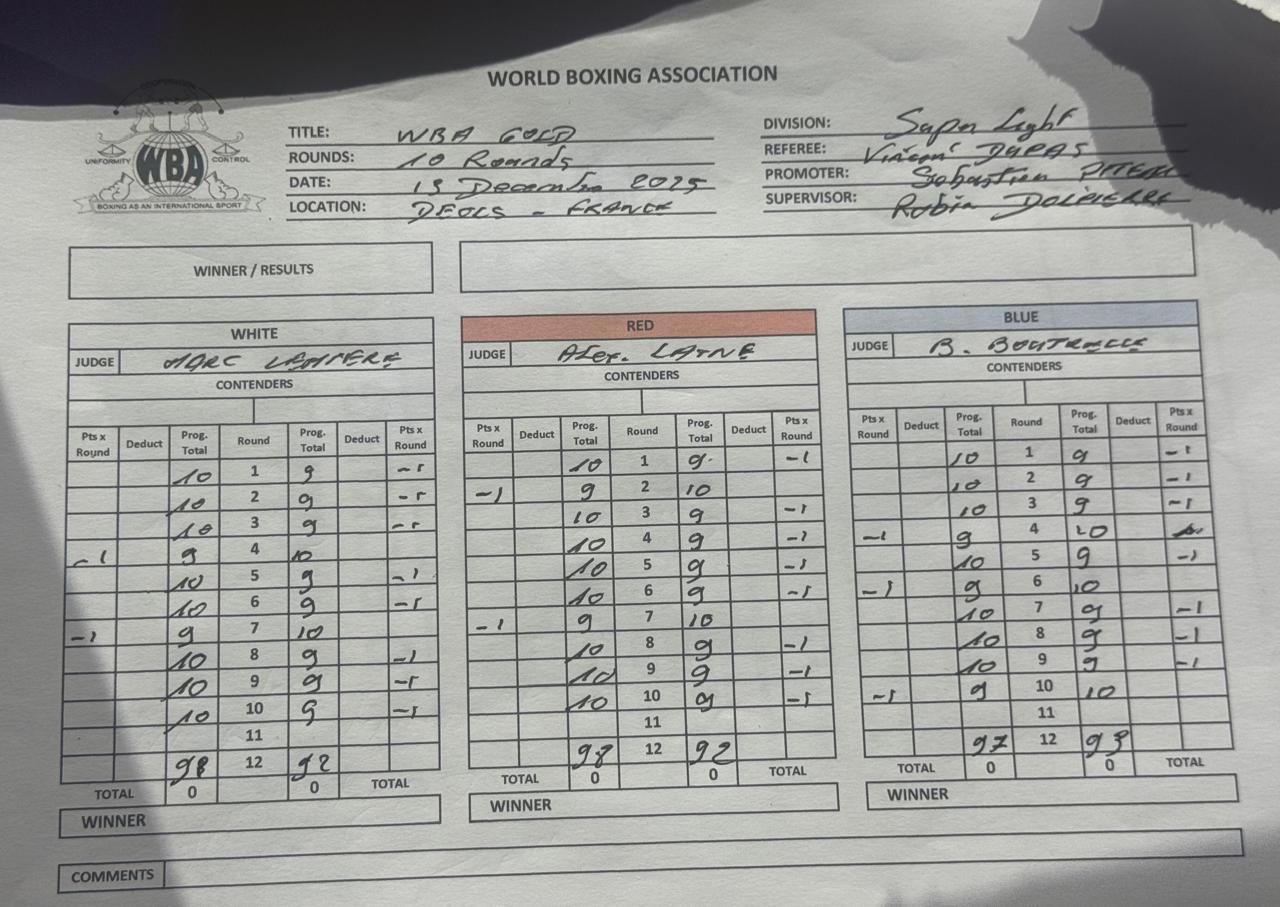 WORLD BOXING ASSOCIATION
UNIFORMITY CONTROL
WBA
BOXING AS AN INTERNATIONAL SPORT
TITLE: WBA GOLD
ROUNDS: 10 Rounds
DATE: 13 Decembre 2025
LOCATION: DEOLS - FRANCE
DIVISION: Super Light
REFEREE: Vincent DUPAS
PROMOTER: Sebastien
SUPERVISOR: Robin DOLPIERRE
WINNER / RESULTS
WHITE RED BLUE
JUDGE MARC JUDGE Alex. LAINE JUDGE B.
CONTENDERS CONTENDERS CONTENDERS
Pts x Round Deduct Prog. Total Round Prog. Total Deduct Pts x Round Pts x Round Deduct Prog. Total Round Prog. Total Deduct Pts x Round Pts x Round Deduct Prog. Total Round Prog. Total Deduct Pts x Round
10 1 9 -1 10 1 9 -1 10 1 9 -1
10 2 9 -1 -1 9 2 10 10 2 9 -1
10 3 9 -1 10 3 9 -1 10 3 9 -1
-1 9 4 10 10 4 9 -1 -1 9 4 10
10 5 9 -1 10 5 9 -1 10 5 9 -1
10 6 9 -1 10 6 9 -1 -1 9 6 10
-1 9 7 10 -1 9 7 10 10 7 9 -1
10 8 9 -1 10 8 9 -1 10 8 9 -1
10 9 9 -1 10 9 9 -1 10 9 9 -1
10 10 9 -1 10 10 9 -1 -1 9 10 10
11 11 11
98 12 92 98 12 92 97 12 93
TOTAL 0 0 TOTAL TOTAL 0 0 TOTAL TOTAL 0 0 TOTAL
WINNER WINNER WINNER
COMMENTS